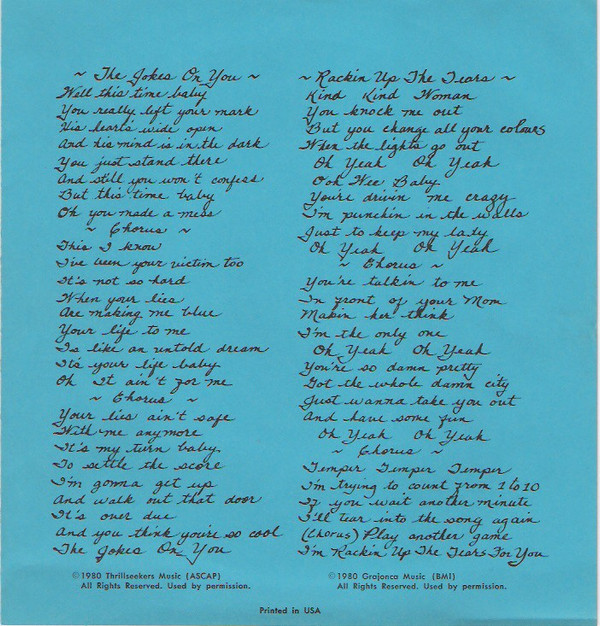 ~ The Jokes On You ~
Well this time baby
You really left your mark
His hearts wide open
And his mind is in the dark
You just stand there
And still you won't confess
But this time baby
Oh you made a mess
~ Chorus ~
This I know
I've been your victim too
It's not so hard
When your lies
Are making me blue
Your life to me
Is like an untold dream
It's your life baby
Oh It ain't for me
~ Chorus ~
Your lies ain't safe
With me anymore
It's my turn baby
To settle the score
I'm gonna get up
And walk out that door
It's over due
And you think you're so cool
The Jokes On You
©1980 Thrillseekers Music (ASCAP)
All Rights Reserved. Used by permission.
~ Rackin Up The Tears ~
Kind Kind Woman
You knock me out
But you change all your colours
When the lights go out
Oh Yeah Oh Yeah
Ooh Wee Baby
You're drivin me crazy
I'm punchin in the walls
Just to keep my lady
Oh Yeah Oh Yeah
~ Chorus ~
You're talkin to me
In front of your Mom
Makin her think
I'm the only one
Oh Yeah Oh Yeah
You're so damn pretty
Got the whole damn city
Just wanna take you out
And have some fun
Oh Yeah Oh Yeah
~ Chorus ~
Temper Temper Temper
I'm trying to count from 1 to 10
If you wait another minute
I'll tear into the song again
(Chorus) Play another game
I'm Rackin Up The Tears For You
©1980 Grajonca Music (BMI)
All Rights Reserved. Used by permission.
Printed in USA